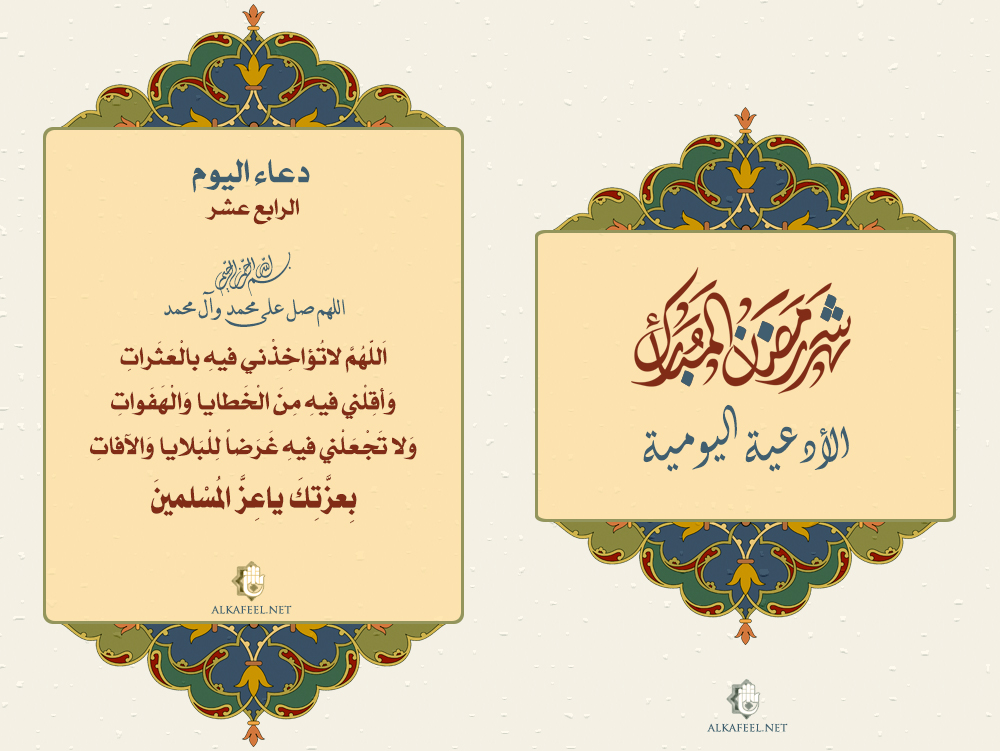 شهر رمضان المبارك
الأدعية اليومية
ALKAFEEL.NET
دعاء اليوم
الرابع عشر
بسم الله الرحمن الرحيم
اللهم صل على محمد وآل محمد
اَللّهُمَّ لاتُؤاخِذْني فيهِ بالْعَثَراتِ
وَأقِلْني فيهِ مِنَ الْخَطايا وَالْهَفَواتِ
وَلا تَجْعَلْني فيهِ غَرَضاً لِلْبَلايا وَالآفاتِ
بِعزَّتِكَ ياعِزَّ المُسْلمينَ
ALKAFEEL.NET